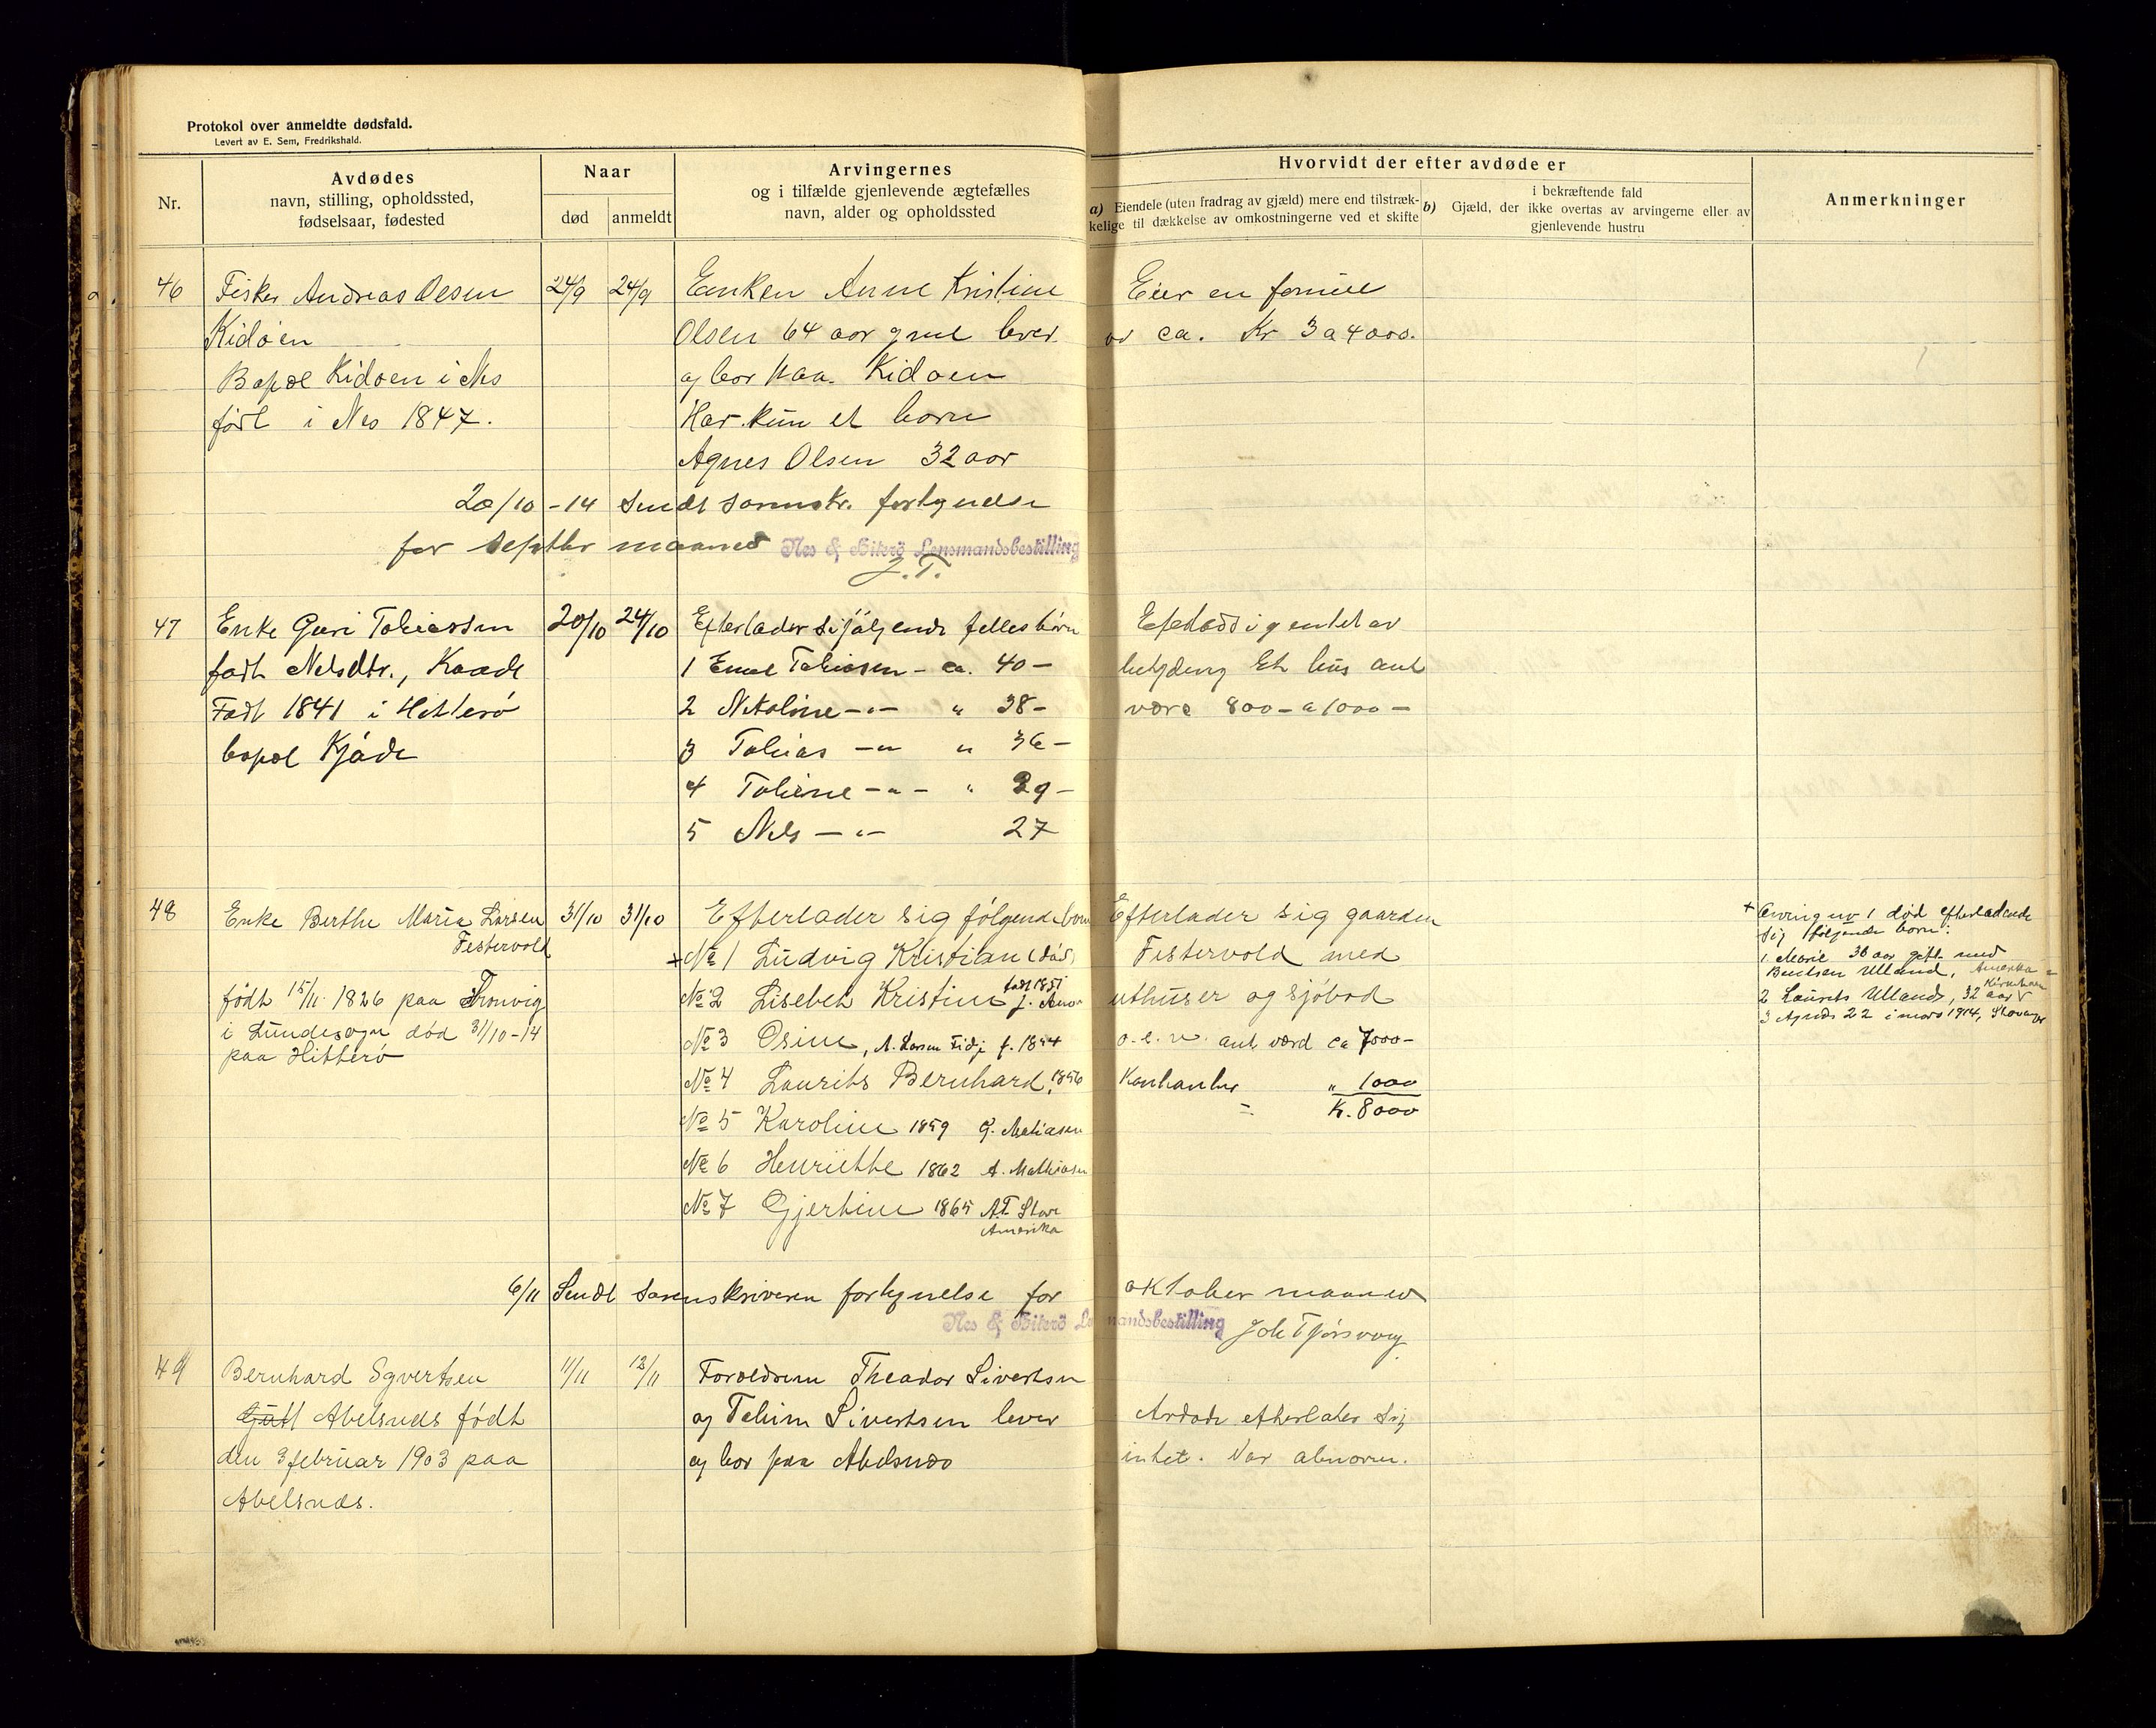 Protokol over anmeldte dødsfald.
Levert av E. Sem, Fredrikshald.
Nr.
Avdødes
navn, stilling, opholdssted,
fødselsaar, fødested
Naar
død
anmeldt
Arvingernes
og i tilfælde gjenlevende ægtefælles
navn, alder og opholdssted
Hvorvidt der efter avdøde er
a) Eiendele (uten fradrag av gjæld) mere end tilstræk-
kelige til dækkelse av omkostningerne ved et skifte
i bekræftende fald
b) Gjæld, der ikke overtas av arvingerne eller av
gjenlevende hustru
Anmerkninger
46
Fisker Andreas Olsen
Kidøen
Bopæl Kidøen i Nes
født i Nes 1847.
24/9
24/9
Enken Anne Kristine
Olsen 64 aar gml lever
og bor paa Kidøen
Har kun et barn
Agnes Olsen 32 aar
Eier en formue
av ca. Kr 3 a 4000.
20/10 - 14 Sendt sorenskr. fortegnelse
for septbr maaned Nes & Hiterö Lensmandsbestilling
J.T.
47
Enke Guri Tobiassen
født Nelsdtr., Kaade
Født 1841 i Hitterö
bopæl Kjóde
20/10
24/10
Efterlader sig følgende felles børn
1 Emel Tobiasen - ca. 40 -
2 Nikoline -"- " 38 -
3 Tobias -" " 36 -
4 Tobine -"- " 29 -
5 Nels -"- 27
Efterlod sig intet av
betydning Et hus ant
være 800 - a 1000 -
48
Enke Berthe Maria Larsen
Festervold
født 15/11 1826 paa Tronvig
i Lundesogn død 31/10-14
paa Hitterö
31/10
31/10
Efterlader sig følgende børn
+ No 1 Ludvig Kristian (død)
No 2 Lisebet Kristine født 1851
No 3 Osine, A. Larsen Fidje f. 1854
No 4 Laurits Bernhard, 1856
No 5 Karoline 1859 G. Mathiasen
No 6 Henriette 1862 A. Mathiasen
No 7 Gjertine 1865 A.T. Stave
Amerika
Efterlader sig gaarden
Festervold med
uthuser og sjøbod
o.s.v. ant. værd ca 7000 -
Kontanter " 1000
= Kr. 8000
+ Arving nr 1 død efterladende
sig følgende børn:
1. Marie 36 aar gift med
Berntsen Ulland, Amerika
2 Laurits Ulland, 32 aar
3 Agnes 22 i mars 1914, Stavanger
6/11 Sendt sorenskriveren fortegnelse for oktober maaned
Nes & Hiterö Lensmandsbestilling
Joh Tjørsvaag
49
Bernhard Syvertsen
Gutt Abelsnes født
den 3 februar 1903 paa
Abelsnes.
11/11
12/11
Forældrene Theodor Sivertsen
og Tobine Sivertsen lever
og bor paa Abelsnes
Avdøde efterlater sig
intet. Var abnorm.